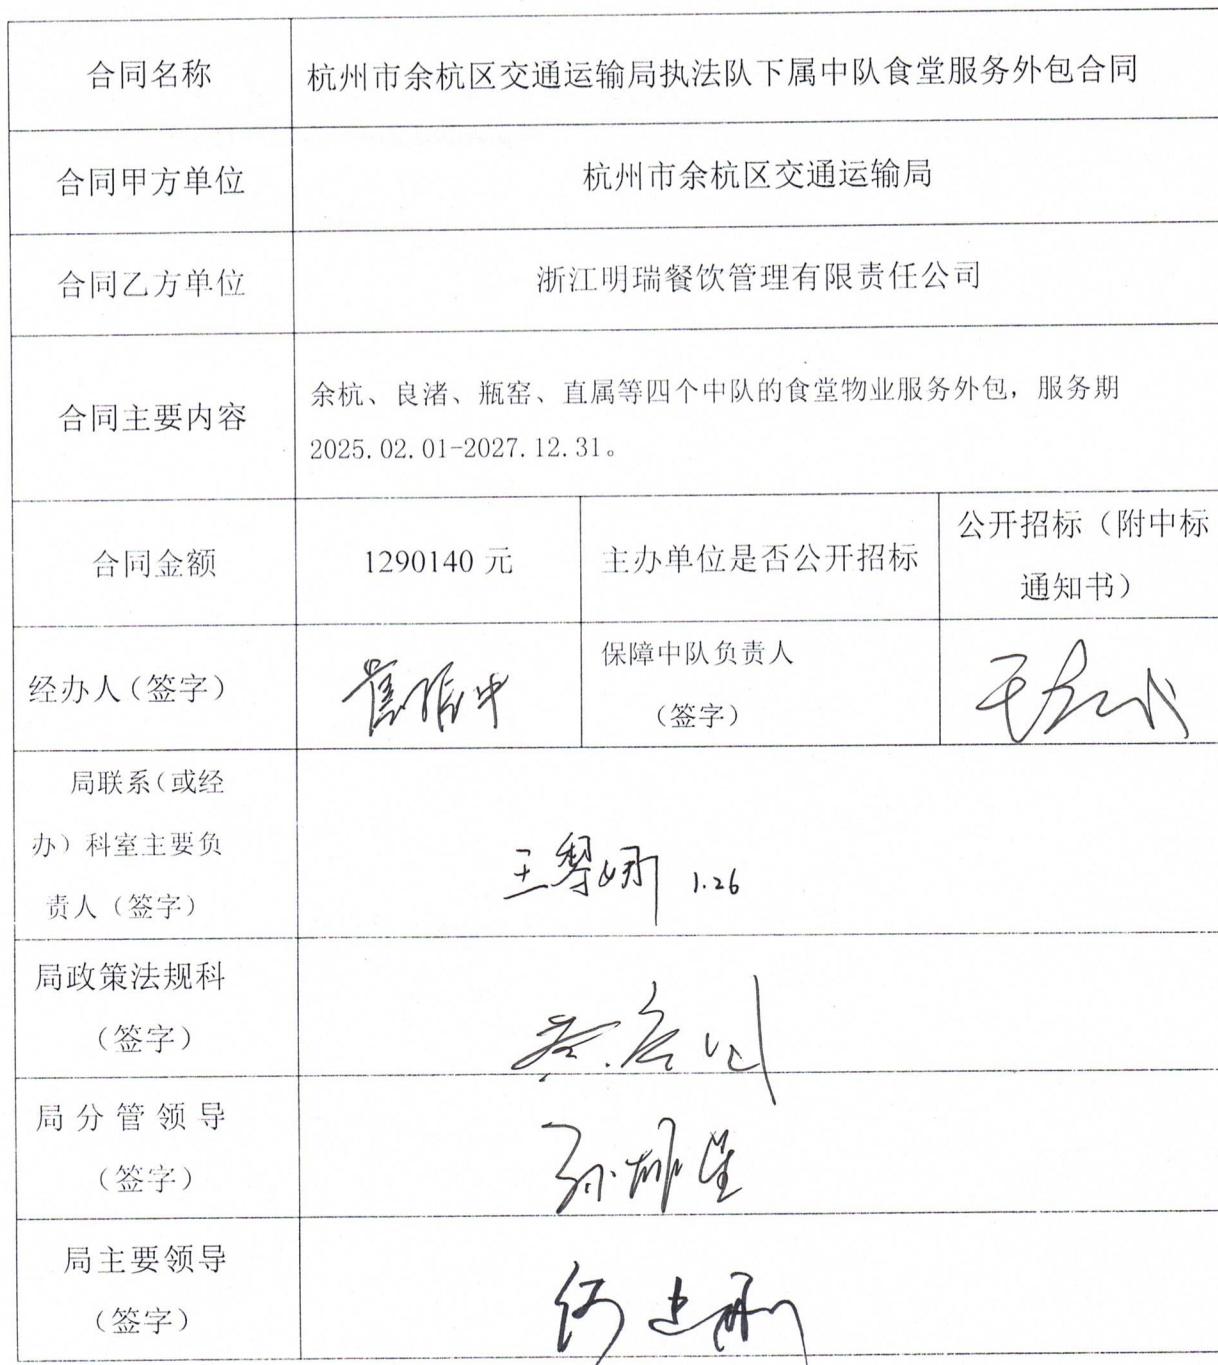 合同名称
杭州市余杭区交通运输局执法队下属中队食堂服务外包合同
合同甲方单位
杭州市余杭区交通运输局
合同乙方单位
浙江明瑞餐饮管理有限责任公司
合同主要内容
余杭、良渚、瓶窑、直属等四个中队的食堂物业服务外包，服务期
2025.02.01-2027.12.31。
合同金额
1290140 元
主办单位是否公开招标
公开招标（附中标
通知书）
经办人（签字）
保障中队负责人
（签字）
局联系（或经
办）科室主要负
责人（签字）
1.26
局政策法规科
（签字）
局分管领导
（签字）
局主要领导
（签字）